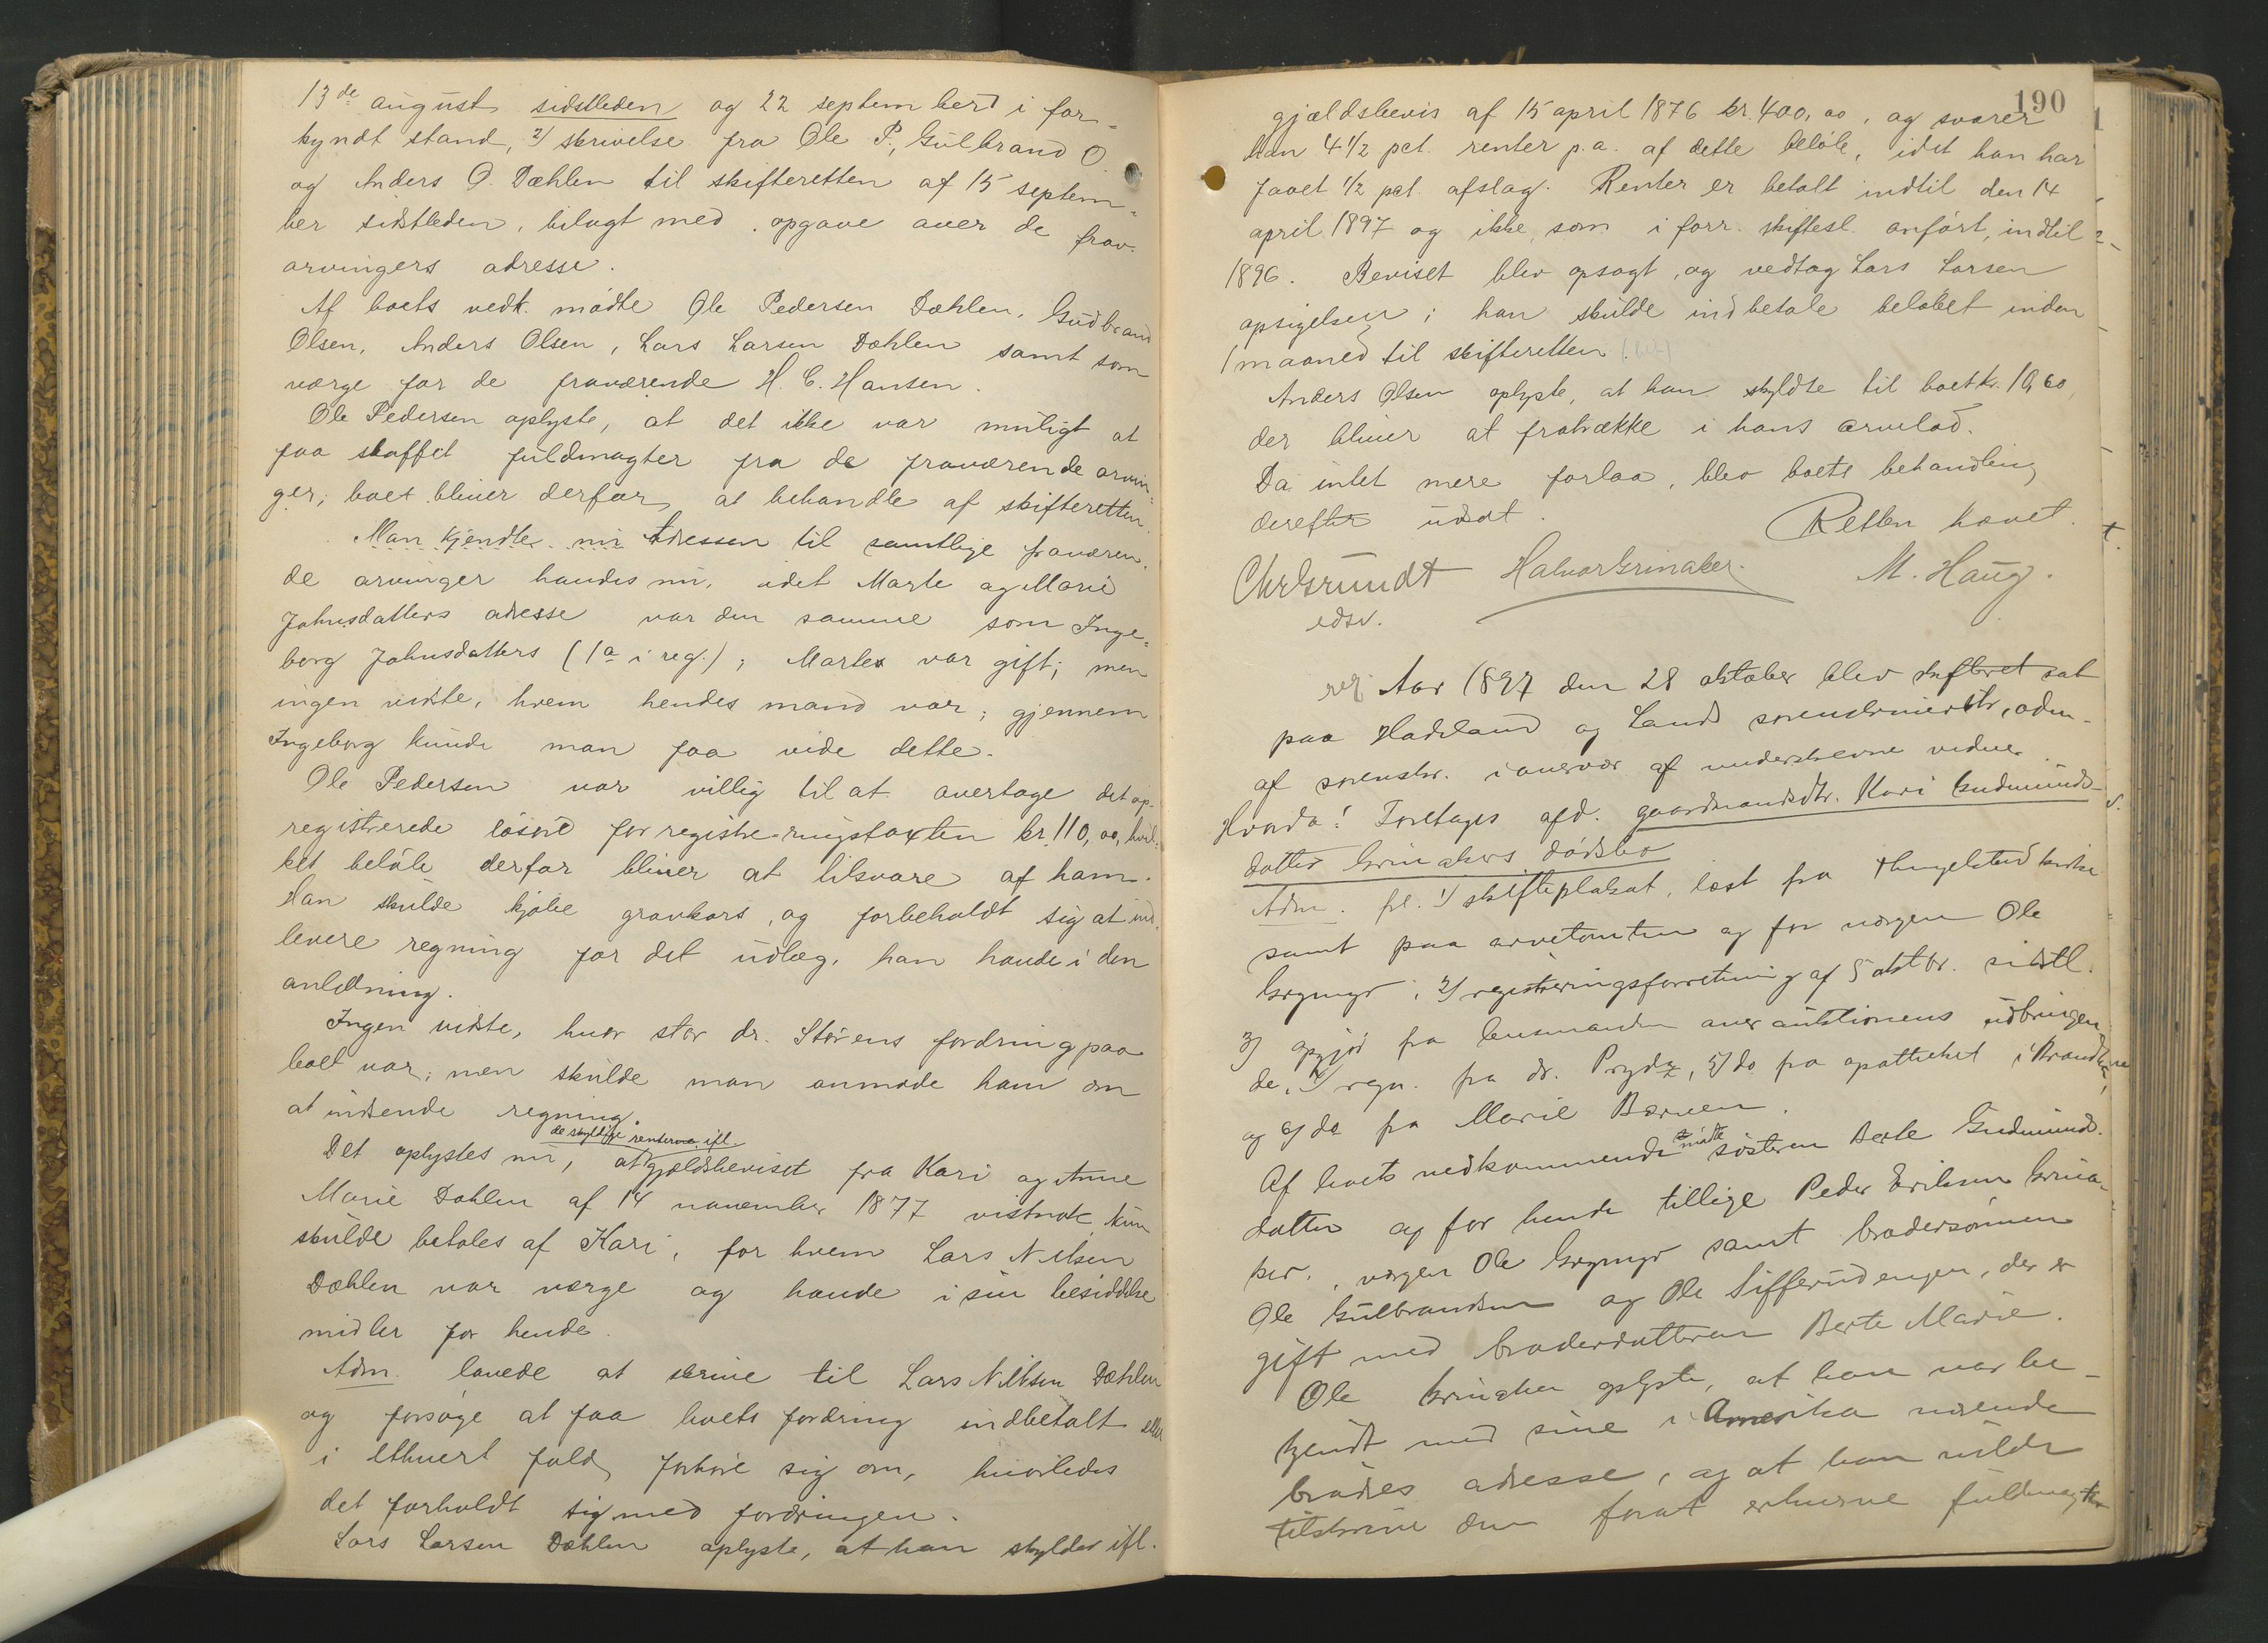 13de august sidstleden og 22 septemberd i for-
kyndt stand, 2/ skrivelse fra Ole P., Gulbrand O.
og Anders O. Dæhlen til skifteretten af 15 septem-
ber sidstleden, bilagt med opgave over de frav.
arvingers adresse.
Af boets vedk. mødte Ole Pedersen Dæhlen, Gudbrand
Olsen, Anders Olsen, Lars Larsen Dæhlen samt som
værge for de fraværende H. C. Hansen.
Ole Pedersen oplyste, at det ikke var muligt at
faa skaffet fuldmagter fra de fraværende arvin-
ger; boet bliver derfor at behandle af skifteretten.
Man kjendte nu adressen til samtlige fraværen-
de arvinger haudes nu, idet Marte og Marie
Johnsdatters adresse var den samme som Inge-
borg Johnsdatters (1a i reg.); Marte var gift; men
ingen vidste, hvem hendes mand var; gjennem
Ingeborg kunde man faa vide dette.
Ole Pedersen var villig til at overtage det op-
registrerede løsøre for registreringstaxten kr. 110,00, hvil-
ket beløb derfor bliver at tilsvare af ham.
Han skulde kjøbe gravkors, og forbeholdt sig at ind-
levere regning for det udlæg, han havde i den
anledning.
Ingen vidste, hvor stor dr. Størens fordring paa
boet var; men skulde man anmode ham om
at indsende regning.
de skyldige renterne ifl.
Det oplystes nu, at gjældsbeviset fra Kari og Anne
Marie Dæhlen af 14 november 1877 vistnok kun
skulde betales af Kari, for hvem Lars Nilsen
Dæhlen var værge og havde i sin besiddelse
midler for hende.
Adm. lovede at skrive til Lars Nilsen Dæhlen
og forsøge at faa boets fordring indbetalt eller
i ethvert fald forhøre sig om, hvorledes
det forholdt sig med fordringen.
Lars Larsen Dæhlen oplyste, at han skylder ifl.
190
gjældsbevis af 15 april 1876 kr. 400,00, og svarer
han 4 1/2 pct. renter p.a. af dette beløb, idet han har
faaet 1/2 pct. afslag. Renter er betalt indtil den 14
april 1897 og ikke, som i forr. skiftesl. anført, indtil
1896. Beviset blev opsagt, og vedtog Lars Larsen
opsigelsen; han skulde indbetale beløbet inden
1 maaned til skifteretten.
Anders Olsen oplyste, at han skyldte til boet kr. 10,60,
der bliver at fratrække i hans arvelod.
Da intet mere forlaa, blev boets behandling
derefter udsat.
Retten hævet.
Chr Grundt Halvor Grinaker. M. Haug.
edsv.
Aar 1897 den 28 oktober blev skifteret sat
paa Hadeland og Lands sorenskriverktr., adm.
af sorenskr. i overvær af underskrevne vidner.
Hvorda: Foretages afd. gaardmandsdtr. Kari Gudmunds-
datter Grinakers dødsbo
Adm. fr. 1/ skifteplakat, læst fra Thingelstad kirke
samt paa arvetomten og for værgen Ole
Grymyr, 2/ registreringsforretning af 5 oktbr. sidstl.
3/ opgjør fra lensmanden over auktionens udbringen-
de, 4/ regn. fra dr. Prydz, 5/ do fra apotheket i Brandbu
og 6/ do fra Marie
Af boets vedkommende mødte søsteren Berte Gudmunds-
datter og for hende tillige Peder Eriksen Grina-
ker., værgen Ole Grymyr samt brodersønnen
Ole Gulbrandsen og Ole Sifferudengen, der er
gift med broderdatteren Berte Marie.
Ole Grinaker oplyste, at han var be-
kjendt med sine i Amerika værende
brødres adresse, og at han vilde
tilskrive dem forat erhverve fuldmagter